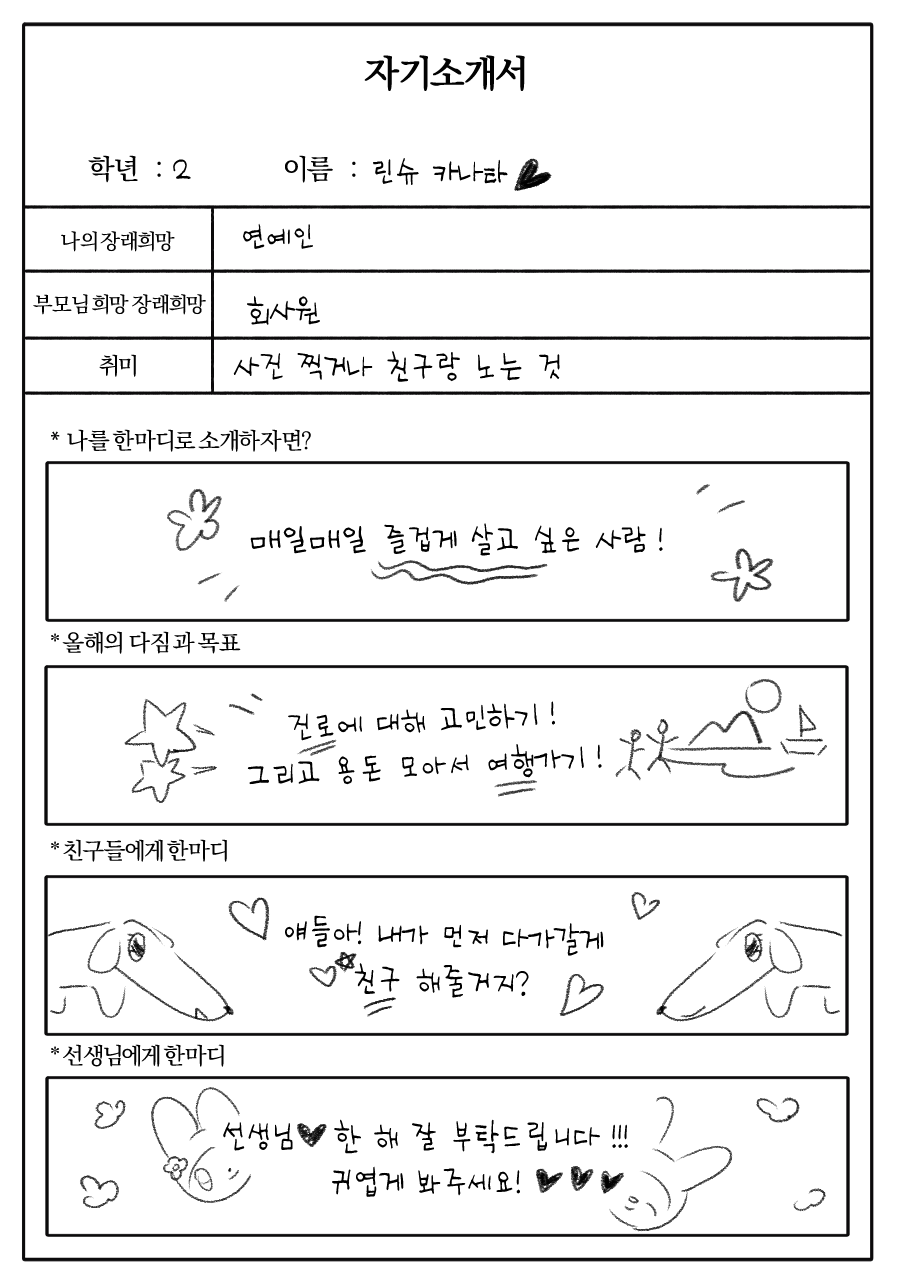 자기소개서
학년 : 2 이름 : 린슈 카나타
나의 장래희망 연예인
부모님 희망 장래희망 회사원
취미 사진 찍거나 친구랑 노는 것
* 나를 한마디로 소개하자면?
매일매일 즐겁게 살고 싶은 사람!
* 올해의 다짐과 목표
진로에 대해 고민하기!
그리고 용돈 모아서 여행가기!
* 친구들에게 한마디
얘들아! 내가 먼저 다가갈게
친구 해줄거지?
* 선생님에게 한마디
선생님♥ 한 해 잘 부탁드립니다!!!
귀엽게 봐주세요! ♥♥♥